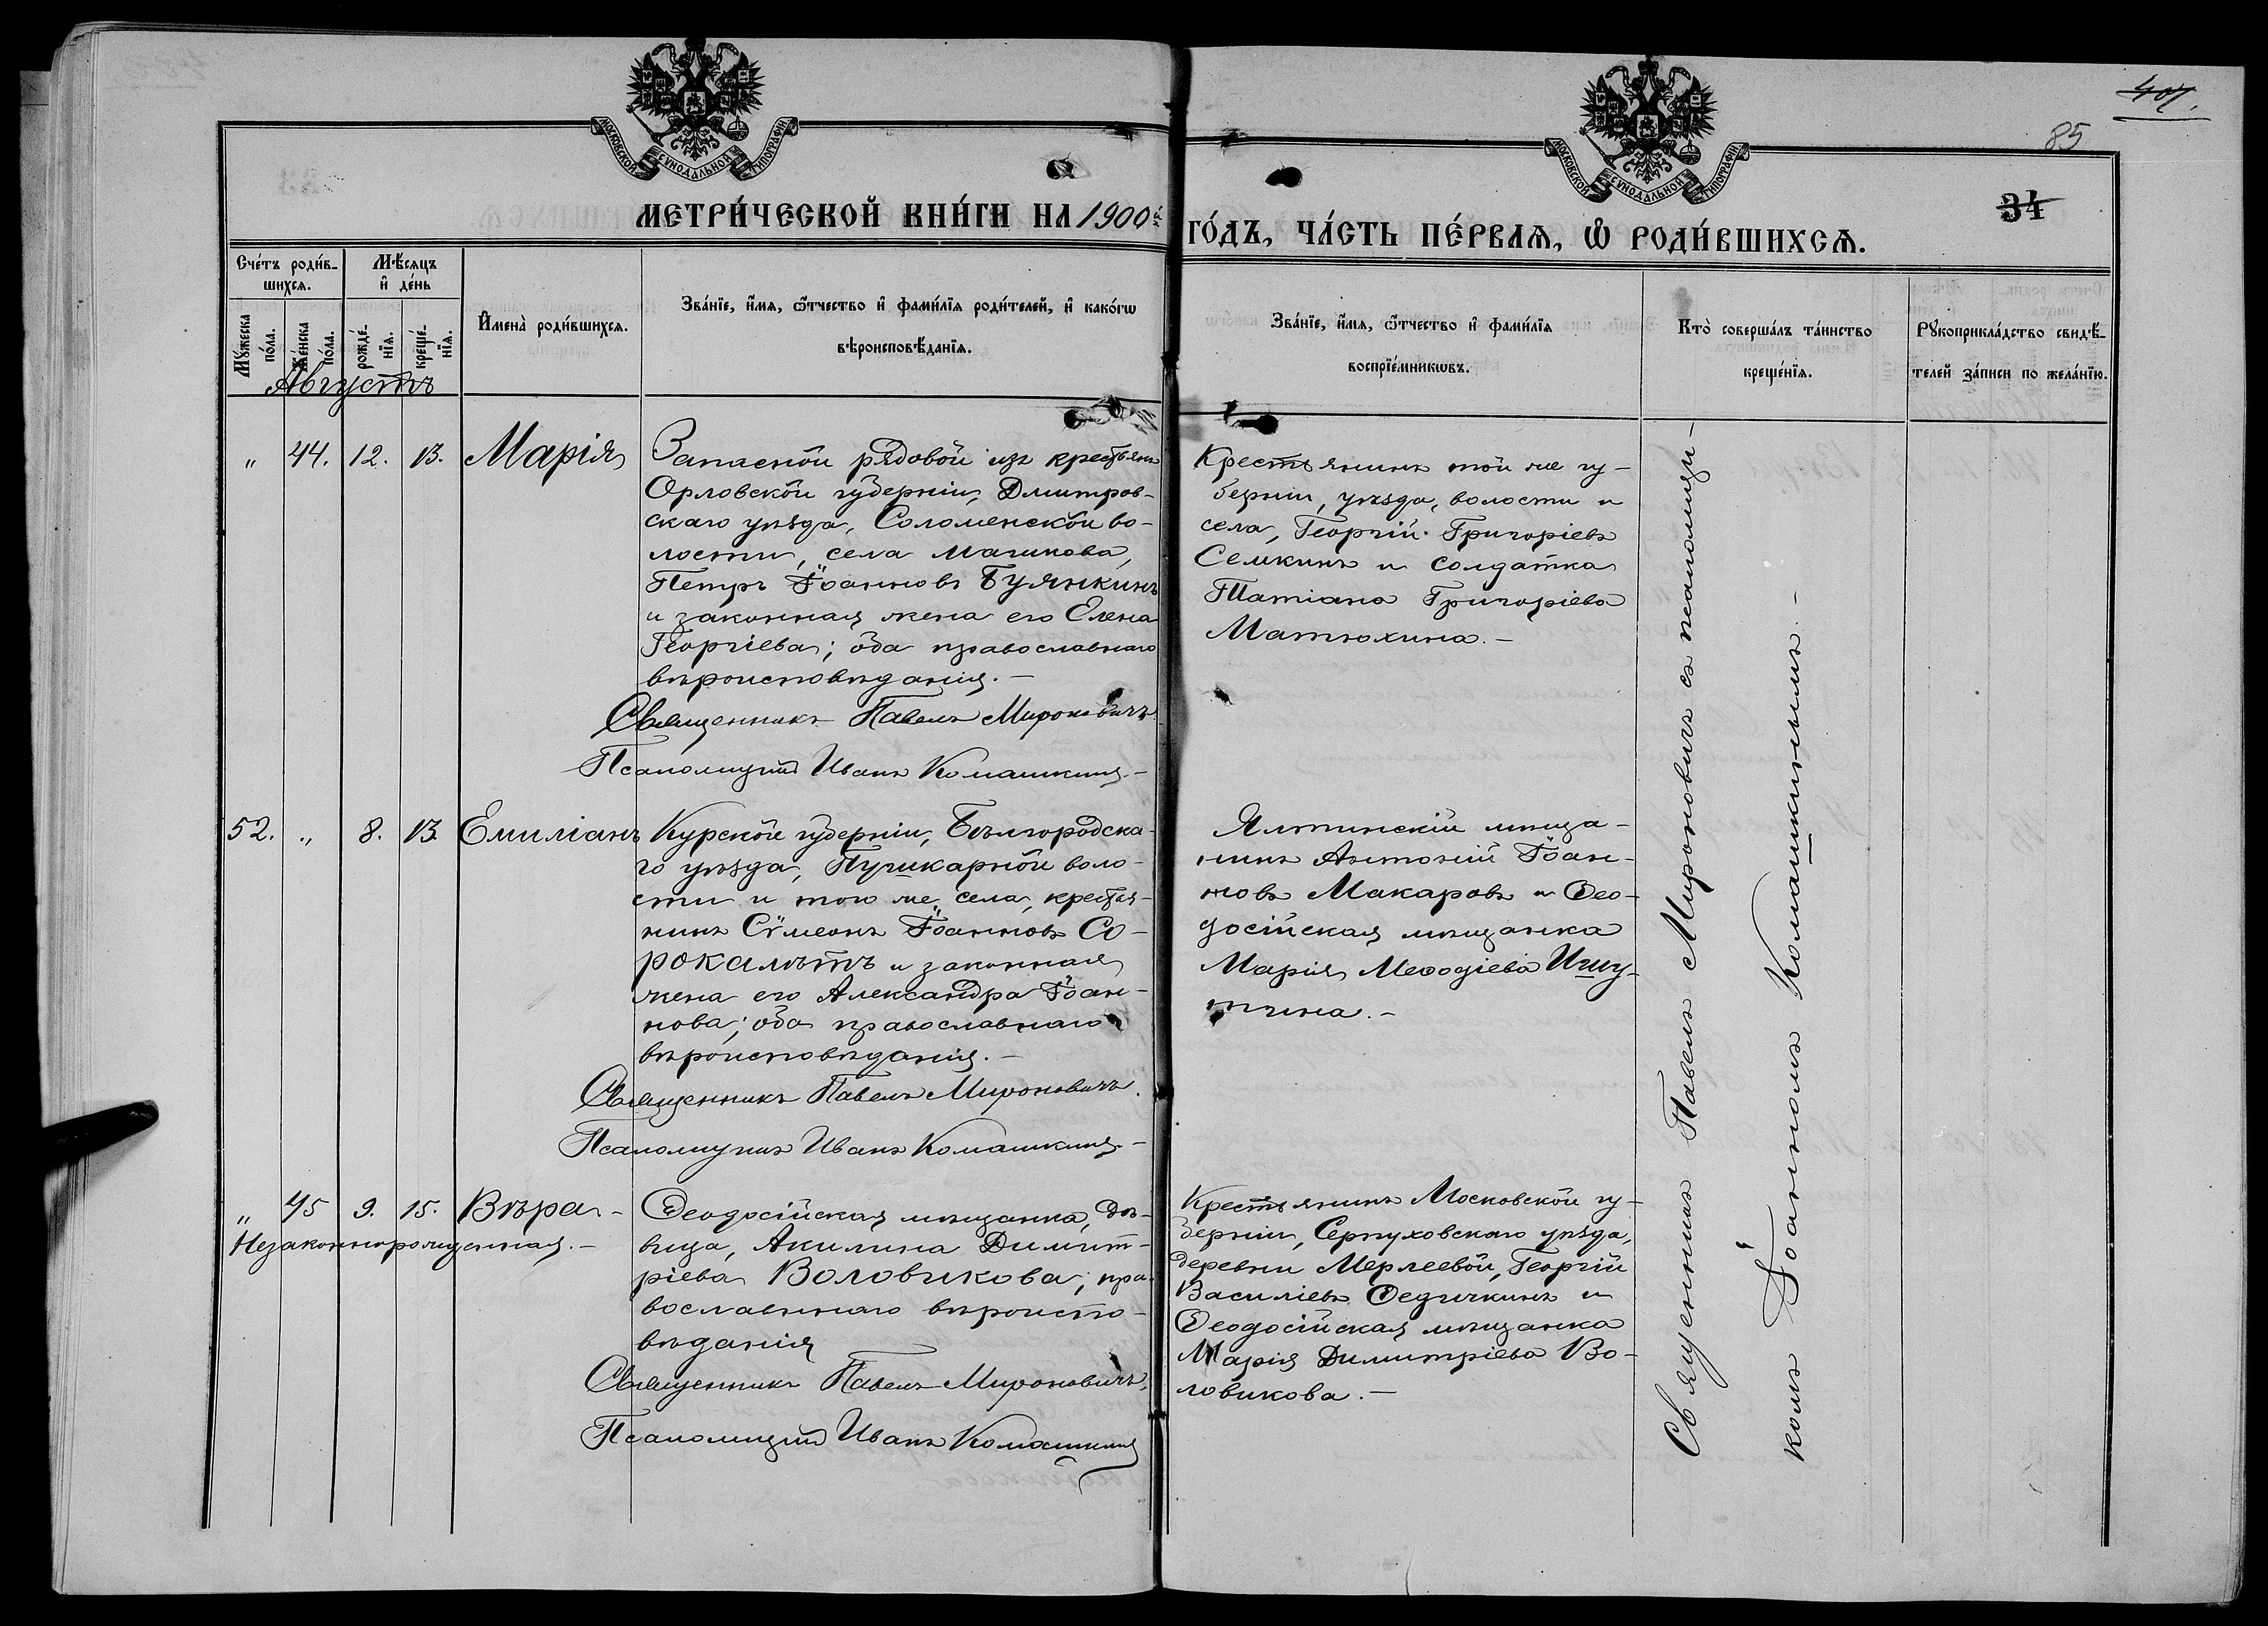 407.
85
34
МОСКОВСКОЙ СѴНОДАЛЬНОЙ ТИПОГРАФІИ
МОСКОВСКОЙ СѴНОДАЛЬНОЙ ТИПОГРАФІИ
МЕТРИ́ЧЕСКОЙ КНИ́ГИ НА 1900й
ГО́ДЪ, ЧА́СТЬ ПЕ́РВАѦ, Ѡ҆ РОДИ́ВШИХСѦ.
Сче́тъ роди́в-
шихсѧ.
Мѣ́сѧцъ
и҆ де́нь
Мꙋ́жеска
по́ла.
Же́нска
по́ла.
рожде́-
нїѧ.
креще́-
нїѧ.
И҆мена̀ роди́вшихсѧ.
Зва́нїе, и҆́мѧ, ѻ҆́тчество и҆ фами́лїѧ роди́телей, и҆ како́гѡ
вѣроисповѣ́данїѧ.
Зва́нїе, и҆́мѧ, ѻ҆́тчество и҆ фами́лїѧ
воспрїе́мникѡвъ.
Кто̀ соверша́лъ та́инство
креще́нїѧ.
Рꙋкоприкла́дство свидѣ́-
телей за́писи по жела́нїю.
Августъ
" 44. 12. 13. Марія
Запасной рядовой изъ крестьянъ
Орловской губерніи, Дмитров-
скаго уѣзда, Соломенской во-
лости, села
Петръ Іоанновъ Буянкинъ
и законная жена его Елена
Георгіева; оба православнаго
вѣроисповѣданія.-
Священникъ Павелъ Мироновичъ
Псаломщикъ Иванъ Комашкинъ.-
Крестьянинъ той же гу-
берніи, уѣзда, волости и
села, Георгій Григоріевъ
Семкинъ и солдатка
Татіана Григоріева
Матюхина.-
52. " 8. 13 Емиліанъ
Курской губерніи, Бѣлгородска-
го уѣзда, Пушкарной воло-
сти и того же села, крестья-
нинъ Сѵмеонъ Іоанновъ Со-
рокалѣтъ и законная
жена его Александра Іоан-
нова; оба православнаго
вѣроисповѣданія.-
Священникъ Павелъ Мироновичъ.
Псаломщикъ Иванъ Комашкинъ.-
Ялтинскій мѣща-
нинъ Антоній Іоан-
новъ Макаровъ и Ѳео-
досійская мѣщанка
Марія Меѳодіева Ишу-
тина.-
" 45 9. 15. Вѣра-
Незаконнорожденная.-
Ѳеодосійская мѣщанка, дѣ-
вица, Акилина Димит-
ріева Воловикова; пра-
вославнаго вѣроиспо-
вѣданія
Священникъ Павелъ Мироновичъ.
Псаломщикъ Иванъ Комашкинъ
Крестьянинъ Московской гу-
берніи, Серпуховскаго уѣзда,
деревни Мерлеевой, Георгій
Василіевъ Ѳедичкинъ и
Ѳеодосійская мѣщанка
Марія Димитріева Во-
ловикова.-
Священникъ Павелъ Мироновичъ съ псаломщи-
комъ Іоанномъ Комашкинымъ.-